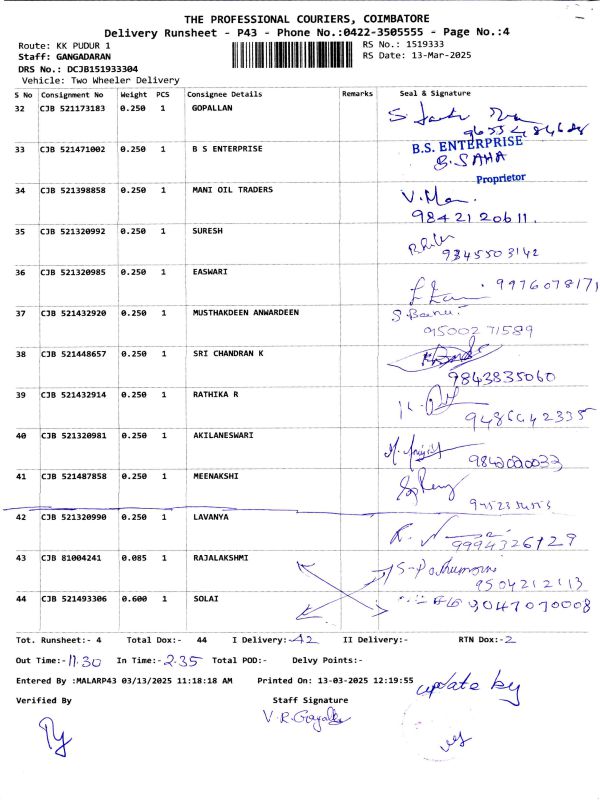 THE PROFESSIONAL COURIERS, COIMBATORE
Delivery Runsheet - P43 - Phone No.:0422-3505555 - Page No.:4
Route: KK PUDUR 1 RS No.: 1519333
Staff: GANGADARAN RS Date: 13-Mar-2025
DRS No.: DCJB151933304
Vehicle: Two Wheeler Delivery
S No Consignment No Weight PCS Consignee Details Remarks Seal & Signature
32 CJB 521173183 0.250 1 GOPALLAN
33 CJB 521471002 0.250 1 B S ENTERPRISE B.S. ENTERPRISE
B. SAHA
Proprietor
34 CJB 521398858 0.250 1 MANI OIL TRADERS
9842120611.
35 CJB 521320992 0.250 1 SURESH
9345503142
36 CJB 521320985 0.250 1 EASWARI
9976078171
37 CJB 521432920 0.250 1 MUSTHAKDEEN ANWARDEEN S. Banu
9500271589
38 CJB 521448657 0.250 1 SRI CHANDRAN K
9843835060
39 CJB 521432914 0.250 1 RATHIKA R
9486642335
40 CJB 521320981 0.250 1 AKILANESWARI
9842020033
41 CJB 521487858 0.250 1 MEENAKSHI
42 CJB 521320990 0.250 1 LAVANYA
9994326129
43 CJB 81004241 0.085 1 RAJALAKSHMI
9504212113
44 CJB 521493306 0.600 1 SOLAI 9047070008
Tot. Runsheet:- 4 Total Dox:- 44 I Delivery:- 42 II Delivery:- RTN Dox:- 2
Out Time:- 11.30 In Time:- 2.35 Total POD:- Delvy Points:-
Entered By :MALARP43 03/13/2025 11:18:18 AM Printed On: 13-03-2025 12:19:55
update by
Verified By Staff Signature